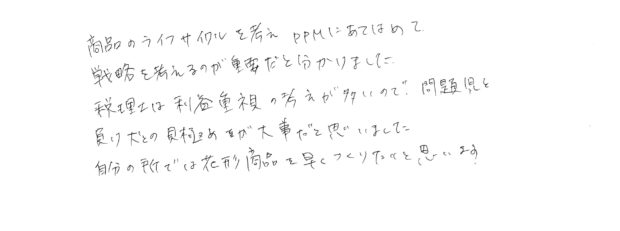 商品のライフサイクルを考え PPMにあてはめて
戦略を考えるのが重要だと分かりました
税理士は利益重視の考えが多いので、問題児と
負け犬との見極めをが大事だと思いました
自分の所では花形商品を早くつくりたいと思います